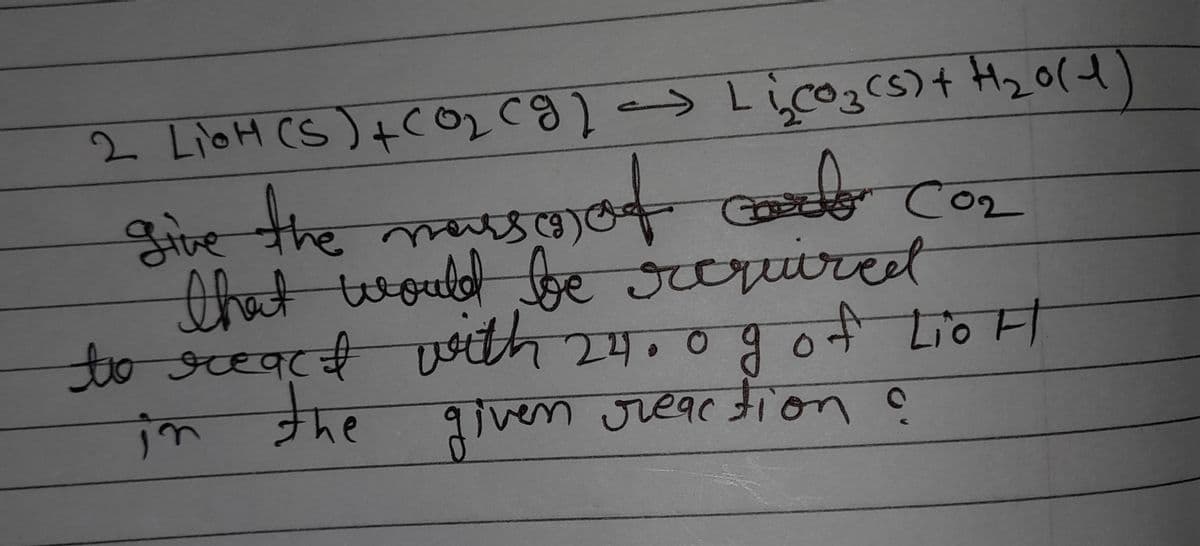 2 LiOH (S) + CO2 (g) → Li2CO3 (S) + H2O(l)
give the mass (g) of CO2
that would be required
to react with 24.0 g of LiOH
in the given reaction ?